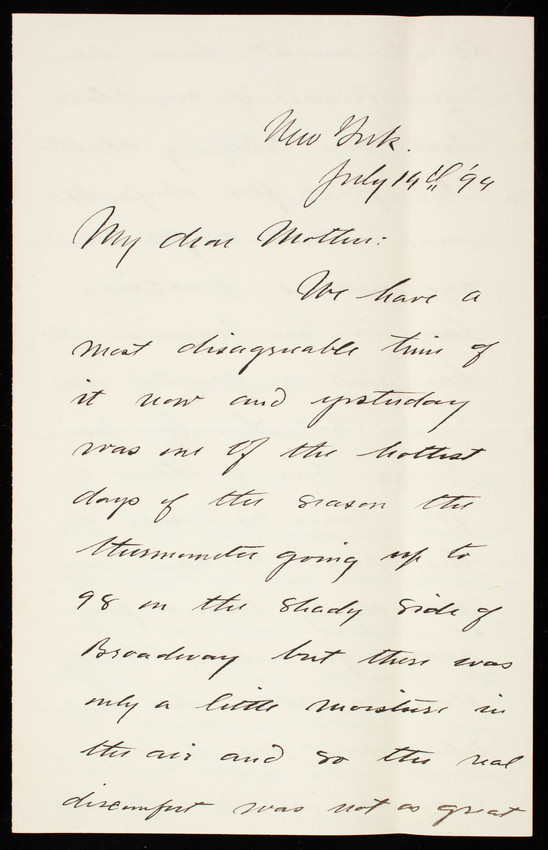 New York.
July 19th '94
My dear Mother:
We have a
most disagreeable time of
it now and yesterday
was one of the hottest
days of the season the
thermometer going up to
98 on the shady side of
Broadway but there was
only a little moisture in
the air and so the real
discomfort was not as great